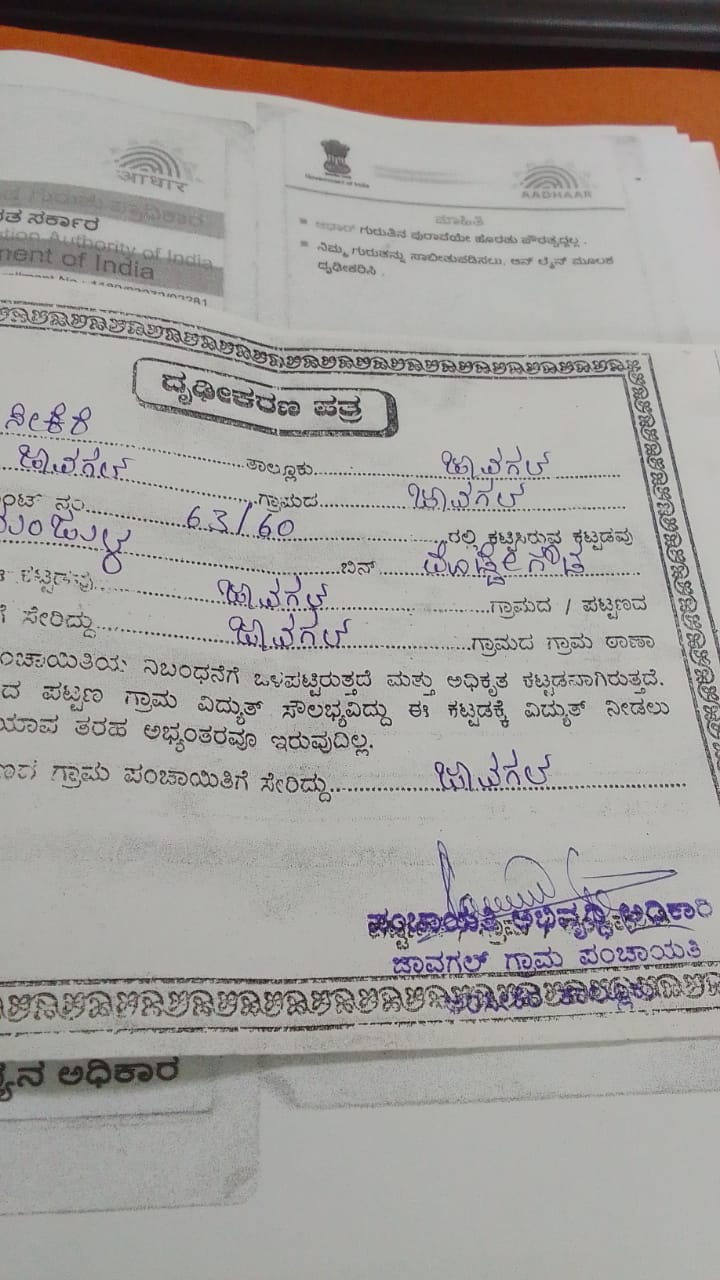 आधार
ಭಾರತ ಸರ್ಕಾರ
Authority of India
ment of India
Government of India
AADHAAR
ಮಾಹಿತಿ
ಆಧಾರ್ ಗುರುತಿನ ಪುರಾವೆಯೇ ಹೊರತು ಪೌರತ್ವದ್ದಲ್ಲ.
ನಿಮ್ಮ ಗುರುತನ್ನು ಸಾಬೀತುಪಡಿಸಲು, ಆನ್ ಲೈನ್ ಮೂಲಕ
ದೃಢೀಕರಿಸಿ.
ದೃಢೀಕರಣ ಪತ್ರ
ಸೀಕೆರೆ ತಾಲ್ಲೂಕು ಜಾವಗಲ್
ಜಾವಗಲ್ ಗ್ರಾಮದ ಜಾವಗಲ್
ನಂ. 63/60 ರಲ್ಲಿ ಕಟ್ಟಿಸಿರುವ ಕಟ್ಟಡವು
ಬಿನ್
ಕಟ್ಟಡವು ಜಾವಗಲ್ ಗ್ರಾಮದ / ಪಟ್ಟಣದ
ಗೆ ಸೇರಿದ್ದು ಜಾವಗಲ್ ಗ್ರಾಮದ ಗ್ರಾಮ ಠಾಣಾ
ಂಚಾಯಿತಿಯ ನಿಬಂಧನೆಗೆ ಒಳಪಟ್ಟಿರುತ್ತದೆ ಮತ್ತು ಅಧಿಕೃತ ಕಟ್ಟಡವಾಗಿರುತ್ತದೆ.
ದ ಪಟ್ಟಣ ಗ್ರಾಮ ವಿದ್ಯುತ್ ಸೌಲಭ್ಯವಿದ್ದು ಈ ಕಟ್ಟಡಕ್ಕೆ ವಿದ್ಯುತ್ ನೀಡಲು
ಯಾವ ತರಹ ಅಭ್ಯಂತರವೂ ಇರುವುದಿಲ್ಲ.
ಗ್ರಾಮ ಪಂಚಾಯಿತಿಗೆ ಸೇರಿದ್ದು ಜಾವಗಲ್
ಪಂಚಾಯತಿ ಅಭಿವೃದ್ಧಿ ಅಧಿಕಾರಿ
ಜಾವಗಲ್ ಗ್ರಾಮ ಪಂಚಾಯತಿ
ಅಧಿಕಾರ